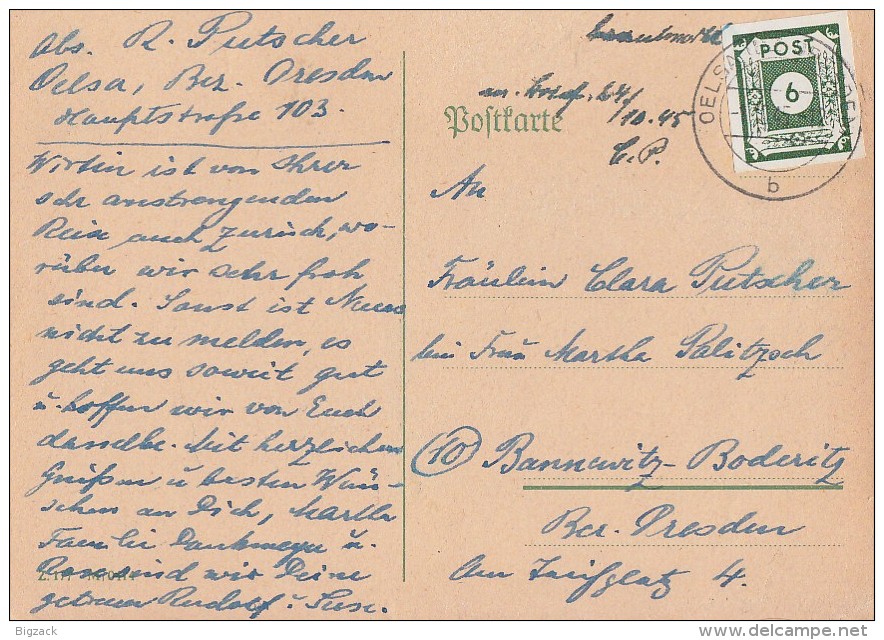 Abs. R. Putscher
Oelsa, Bez. Dresden
Hauptstraße 103.
Wirtin ist von Ihrer
sehr anstrengenden
Reise auch zurück, wo-
rüber wir sehr froh
sind. Sonst ist Neues
nicht zu melden, es
geht uns soweit gut
u. hoffen wir von Euch
dasselbe. Mit herzlichen
Grüßen u besten Wün-
schen an Dich, Martha
Familie u.
sind wir Deine
getreuen Rudolf u. Suse.
Postkarte
24/
/10.45
C. P.
POST
6
OELSA
b
An
Fräulein Clara Putscher
bei Frau Martha Palitzsch
(10) Bannewitz-Boderitz
Bez. Dresden
Am 4.
Bigzack
Bigzack